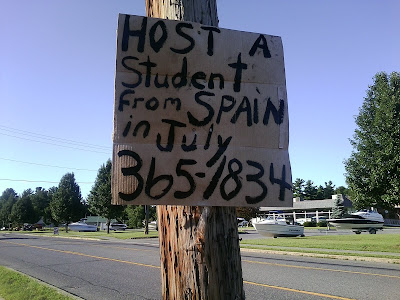 HOST A
Student
from SPAIN
in July
365-1834